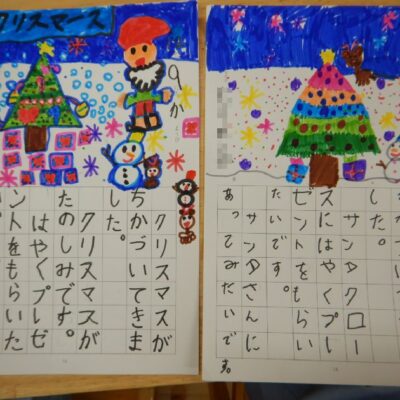 クリスマース
クリスマスが
ちかづいてきま
した。
クリスマスが
たのしみです。
はやくプレゼ
ントをもらいた
した。
サンタクロー
スにはやくプレ
ゼントをもらい
たいです。
サンタさんに
あってみたいです。